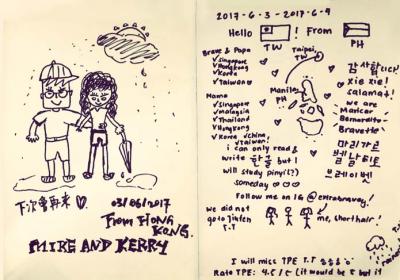 下次會再來 ♡
03/06/2017
From HONG KONG.
MIKE AND KERRY
2017-6-3 - 2017-6-4
Hello TW ! From PH
Taipei, TW
Brave & Papa
✓ Singapore
✓ Hongkong
✓ Korea
✓ Taiwan
Manila, PH
Mama
✓ Singapore
✓ Malaysia
✓ Thailand
✓ Hongkong
✓ Korea ✓ China
✓ Taiwan!
감사합니다!
xie xie!
salamat!
we are
Maricar
Bernardette
Bravette
마리가르
벨날디테
브레이벳
i can only read &
write 한글 but i
will study pinyi(?)
someday ♡♡♡
Follow me on IG
we did not
go to jinfen
T.T
me, short hair!
I will miss TPE T.T
Rate TPE: 4.5/5 (it would be 5 but it